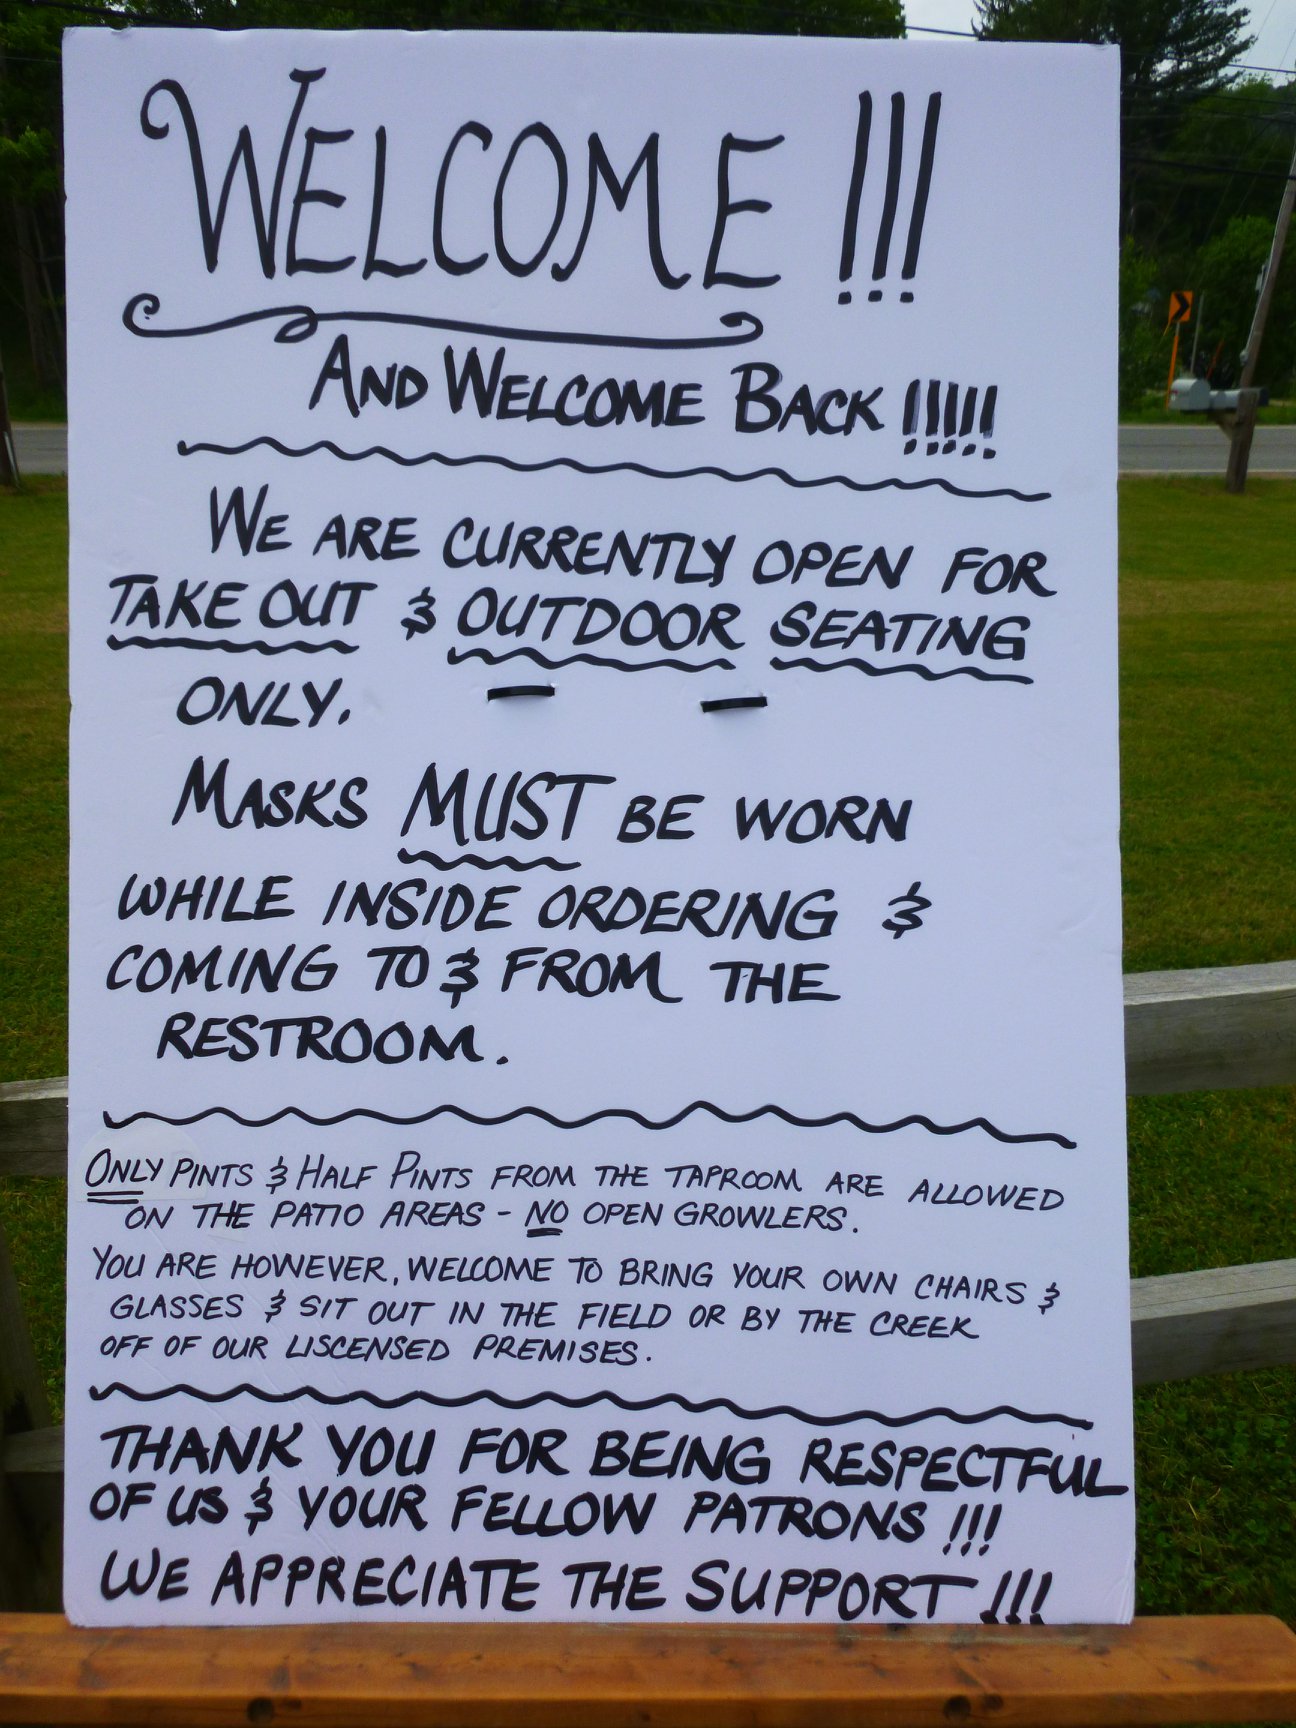 WELCOME !!!
AND WELCOME BACK !!!!!
WE ARE CURRENTLY OPEN FOR
TAKE OUT & OUTDOOR SEATING
ONLY.
MASKS MUST BE WORN
WHILE INSIDE ORDERING &
COMING TO & FROM THE
RESTROOM.
ONLY PINTS & HALF PINTS FROM THE TAPROOM ARE ALLOWED
ON THE PATIO AREAS - NO OPEN GROWLERS.
YOU ARE HOWEVER, WELCOME TO BRING YOUR OWN CHAIRS &
GLASSES & SIT OUT IN THE FIELD OR BY THE CREEK
OFF OF OUR LISCENSED PREMISES.
THANK YOU FOR BEING RESPECTFUL
OF US & YOUR FELLOW PATRONS !!!
WE APPRECIATE THE SUPPORT !!!